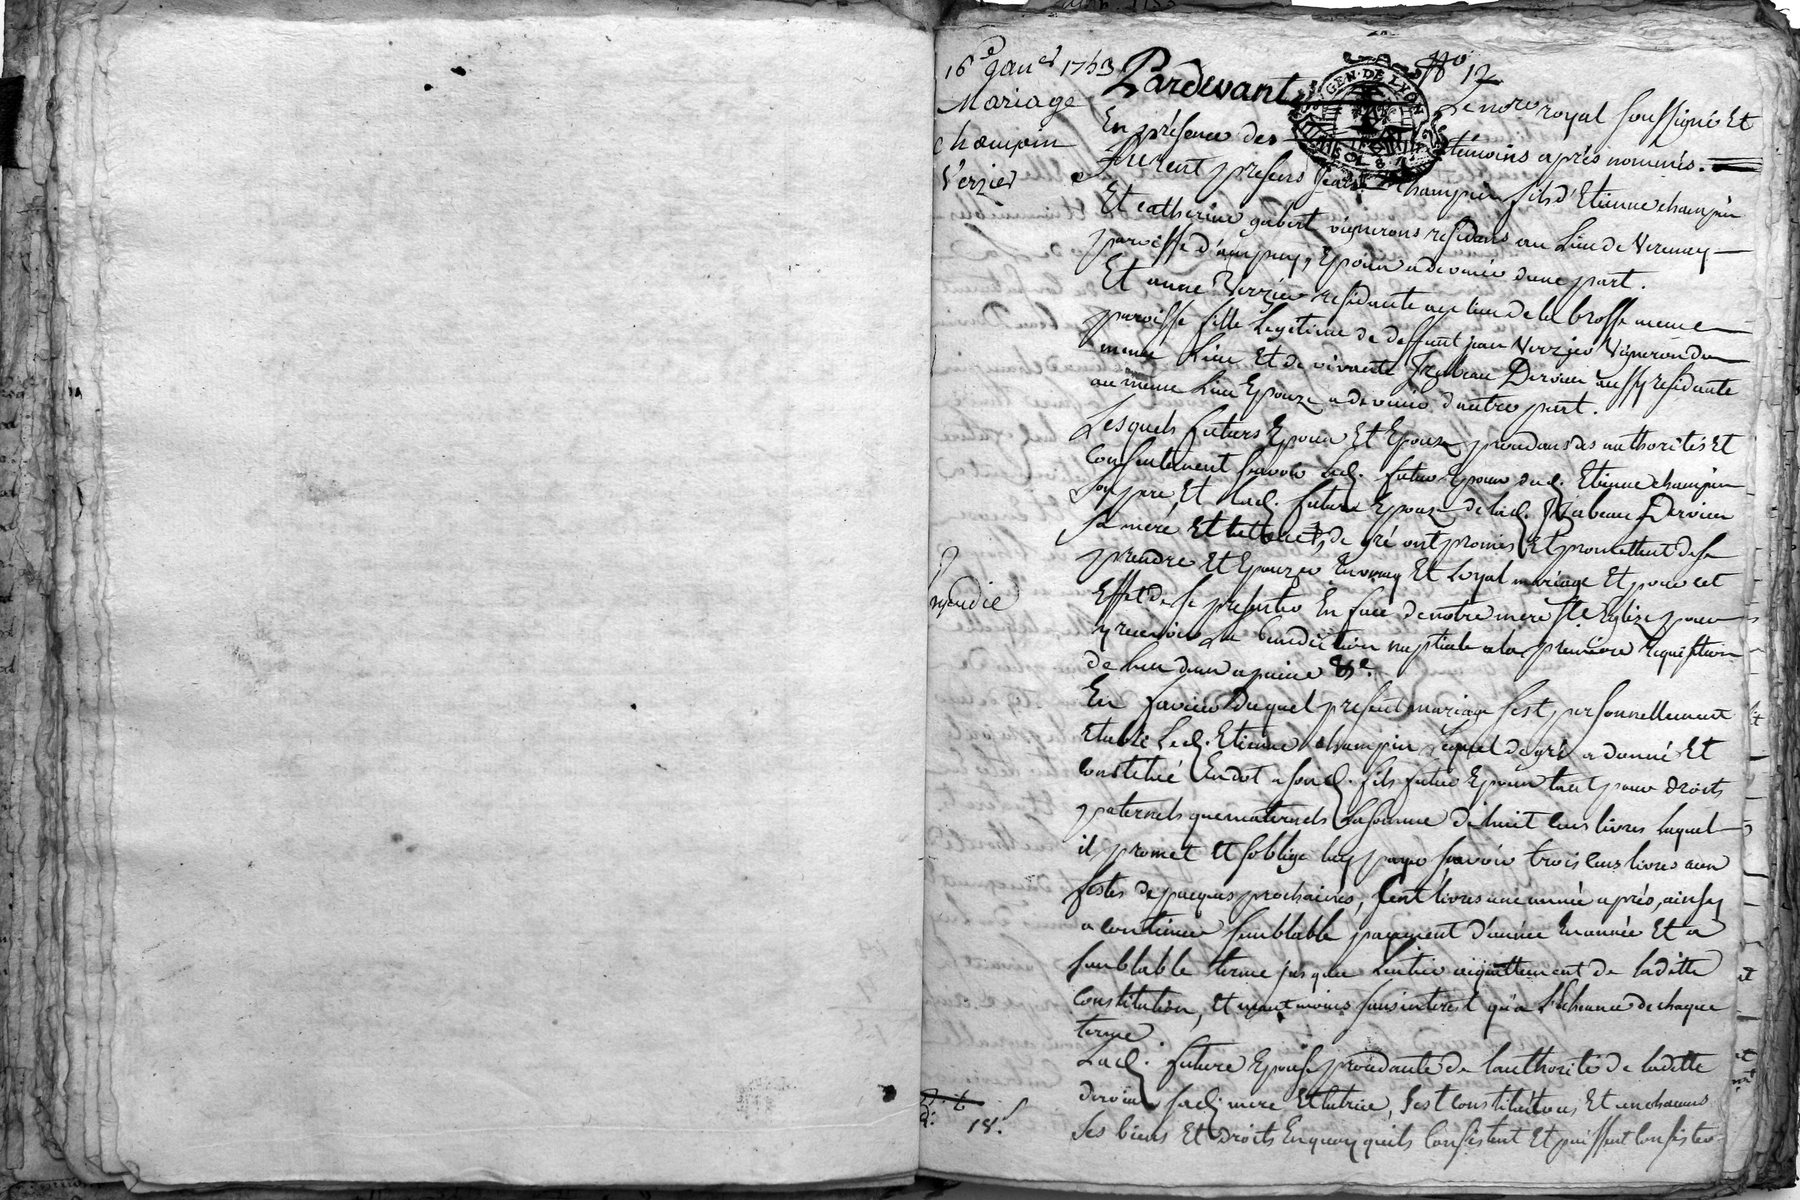 16e Janer 1753
Mariage
champin
Verzier
expedié
18s
No 12
GEN. DE LYON
Pardevant Le nore royal soussigné Et
En présence des témoins après nommés.
furent presens Jean Champin fils d'Etienne champin
Et catherine gabert vignerons residans au Lieu de Verenay
paroisse d'ampuys Epoux advenir d'une part.
Et anne Verzier residante au lieu de la brosse meme
paroisse fille Legitime de deffunt jean Verzier Vigneron du
meme Lieu Et de vivante Izabeau Dervieu aussy residante
au meme Lieu Epouze advenir d'autre part.
Lesquels futurs Epoux Et Epouze procedans des authorités Et
consentement savoir Led. futur Epoux dud. Etienne champin
son pere, Et lad. future Epouze de lad. Izabeau Dervieu
sa mere Et tutrice, de gré ont promis Et promettent de se
prendre Et Epouzer En vray Et Loyal mariage Et pour cet
Effet de se presenter En face de notre mere Ste Eglize pour
y recevoir La Benediction nuptiale a la premiere requisition
de l'un d'eux a peine &c.
En faveur duquel present mariage s'est personnellement
Etabli Led. Etienne champin Lequel de gré a donné Et
constitué En dot a son d. fils futur Epoux tant pour droits
paternels que maternels La somme de huit cens livres laquelle
il promet Et s'oblige luy payer savoir trois cens livres aux
festes de pacques prochaines, Cent livres une année après, ainsy
a continuer semblable payement d'année En année Et a
semblable terme jusqu'au Entier acquittement de laditte
constitution, Et neantmoins sans interest qu'a l'Echeance de chaque
terme.
Lad. future Epouse procedante de l'authorité de laditte
dervieu sad. mere Et tutrice, s'est constitué tous Et un chacuns
ses biens Et Droits En quoy qu'ils consistent Et puissent consister